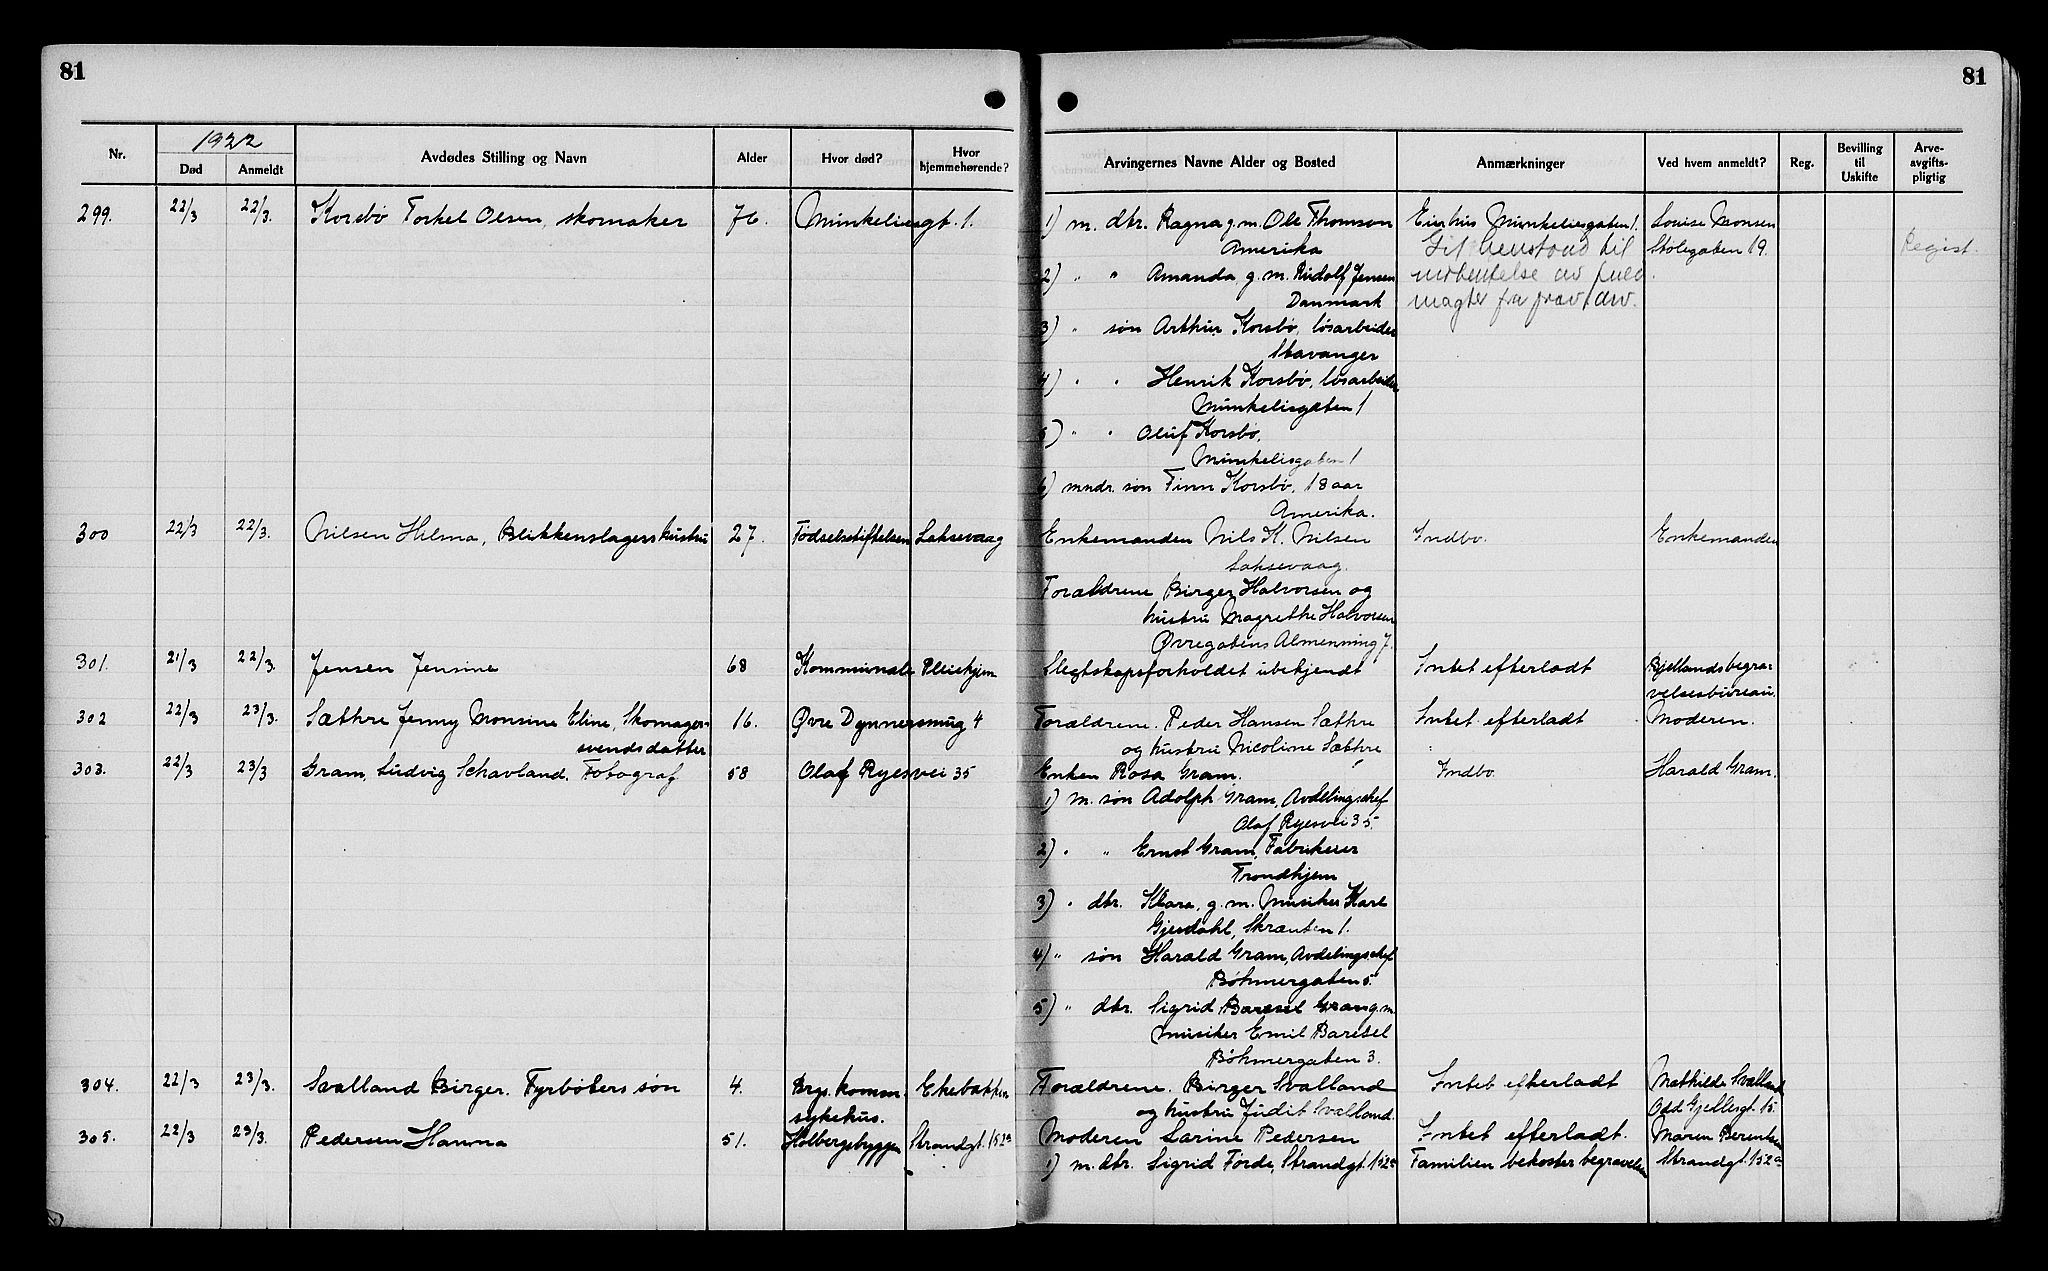 81
81
Nr.
1922
Død
Anmeldt
Avdødes Stilling og Navn
Alder
Hvor død?
Hvor hjemmehørende?
Arvingernes Navne Alder og Bosted
Anmærkninger
Ved hvem anmeldt?
Reg.
Bevilling til Uskifte
Arve-avgifts-pligtig
299. 22/3 22/3. Korsbø Torkel Olsen, skomaker 76. Munkeliesgt. 1.
1) m. dtr. Ragna g. m. Ole Thomson
Amerika
2) " " Amanda, g. m. Rudolf Jensen
Danmark
3) " søn Arthur Korsbø, løsarbeider
Stavanger
4) " " Henrik Korsbø, løsarbeider
Munkelisgaten 1
5) " " Oluf Korsbø,
Munkelisgaten 1
6) mndr. søn Finn Korsbø, 18 aar
Amerika.
Eierhus Munkeliesgaten 1.
Git henstand til
indhentelse av full
magter fra frav. arv.
Louise Monsen
Stølegaten 19.
Regist.
300 22/3 22/3. Nilsen Helma, Blikkenslagers hustru 27. Fødselsstiftelsen Laksevaag
Enkemanden Nils K. Nilsen
Laksevaag.
Forældrene Birger Halvorsen og
hustru Magrethe Halvorsen
Øvregatens Almenning 7.
Indbo.
Enkemanden
301. 21/3 22/3. Jensen Jensine 68 Kommunale Pleiehjem
Slegtskapsforholdet ubekjendt
Intet efterladt
Bjellands begra-
velsesbureau.
302 22/3 23/3. Sæthre Jenny Monsine Eline, Skomager-
svendsdatter
16. Øvre Dynnersmug 4
Forældrene. Peder Hansen Sæthre
og hustru Nicoline Sæthre
Intet efterladt
Moderen.
303. 22/3 23/3 Gram, Ludvig Schavland. Fotograf 58 Olaf Ryesvei 35
Enken Rosa Gram.
1) m. søn Adolph Gram, Avdelingschef
Olaf Ryesvei 35.
2) " " Ernst Gram, Fabrikeier
Trondhjem
3) " dtr. Klara, g. m. Musiker Karl
Gjerdahl, Skrænten 1.
4) " søn Harald Gram, Avdelingschef
Bøhmergaten 5
5) " dtr. Sigrid Baresel Gram g. m.
musiker Emil Baresel
Bøhmergaten 3.
Indbo.
Harald Gram.
304. 22/3 23/3. Svalland Birger. Fyrbøters søn 4. Brgs. komm.
sykehus.
Ekebakken
Forældrene. Birger Svalland
og hustru Judit Svalland.
Intet efterladt
Mathilde Svalland
Odd Gjellesgt. 15.
305. 22/3 23/3. Pedersen Hanna 51. Holbergsbyggen Strandgt. 152a
Moderen Sarine Pedersen
1) m. dtr. Sigrid Førde, Strandgt. 152a
Intet efterladt.
Familien bekoster begravelsen
Maren Berentsen
Strandgt. 152a